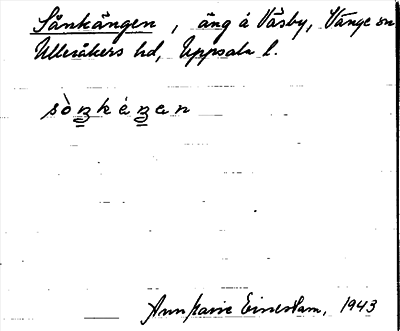 Sånkången, äng å Väsby, Vänge sn
Ulleråkers hd, Uppsala l.
sòŋkáŋen
Ann Marie Einestam, 1943